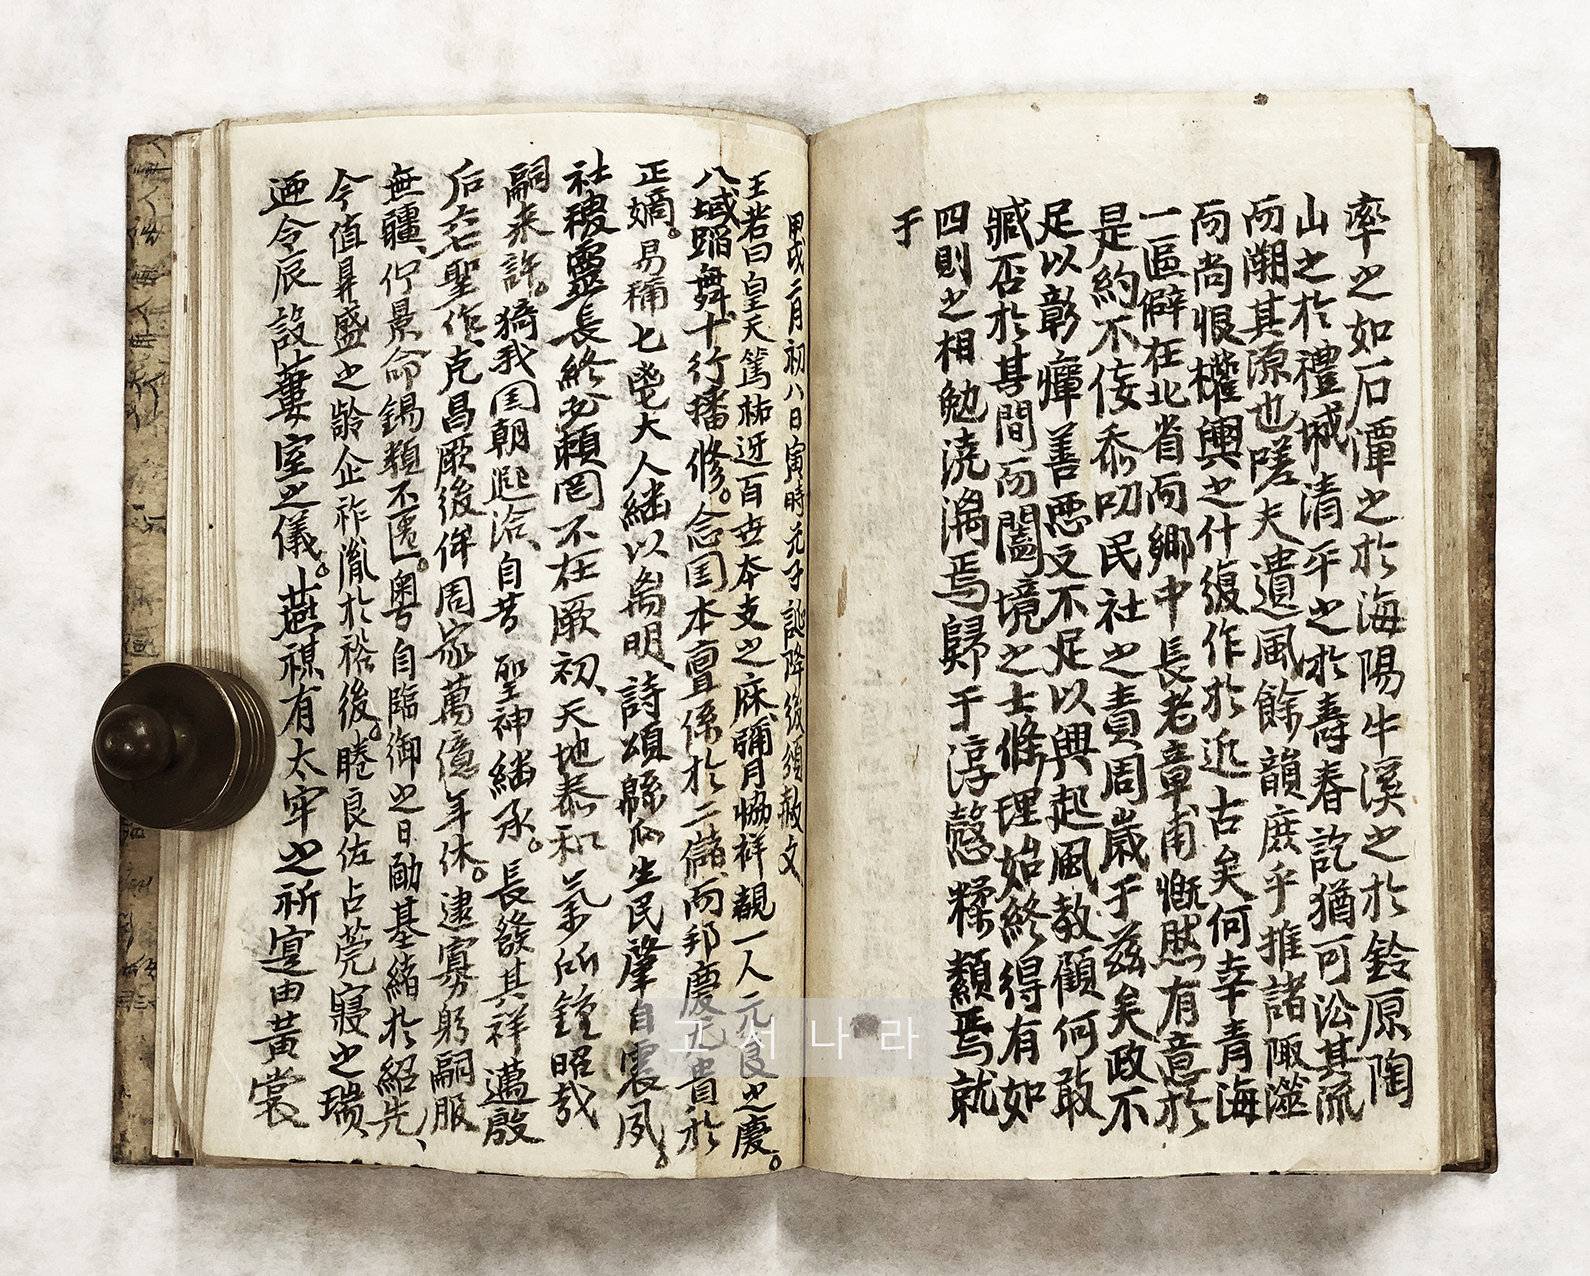 率之如石潭之於海陽牛溪之於鈴原陶
山之於禮城清平之於壽春訖猶可沿其流
而溯其源也嗟夫遺風餘韻庶乎推諸陬澨
而尚恨權輿之什復作於近古矣何幸青海
一區僻在北省而鄉中長老章甫慨然有意於
是約不佞忝叨民社之責周歲于玆矣政不
足以彰癉善惡又不足以興起風敎顧何敢
臧否於其間而闔境之士條理始終得有如
四則之相勉澆漓焉歸于淳慤糅纇焉就
于
甲戌二月初八日寅時元子誕降後頒赦文
王若曰皇天篤祜迓百世本支之庥彌月協祥覩一人元良之慶
八域蹈舞十行播修念国本亶係於二儲而邦慶元貴於
正嫡易稱七鬯大人繼以离明詩頌緜瓜生民肇自震夙
社稷靈長終必賴罔不在厥初天地泰和氣所鍾昭哉
嗣来許猗我国朝熙洽自昔聖神繼承長發其祥邁殷
后六七聖作克昌厥後侔周家萬億年休逮寡躬嗣服
無疆佇景命錫類不匱粤自臨御之日勔基緒於紹先
今值鼎盛之齡企祚胤於裕後睠良佐占莞寢之瑞
迺令辰設蔞室之儀燕禖有太牢之祈寔由黃裳
고서나라